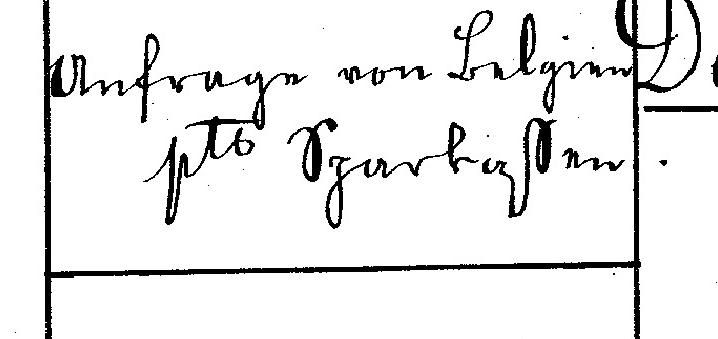 Anfrage von Belgien
pts Sparkassen.